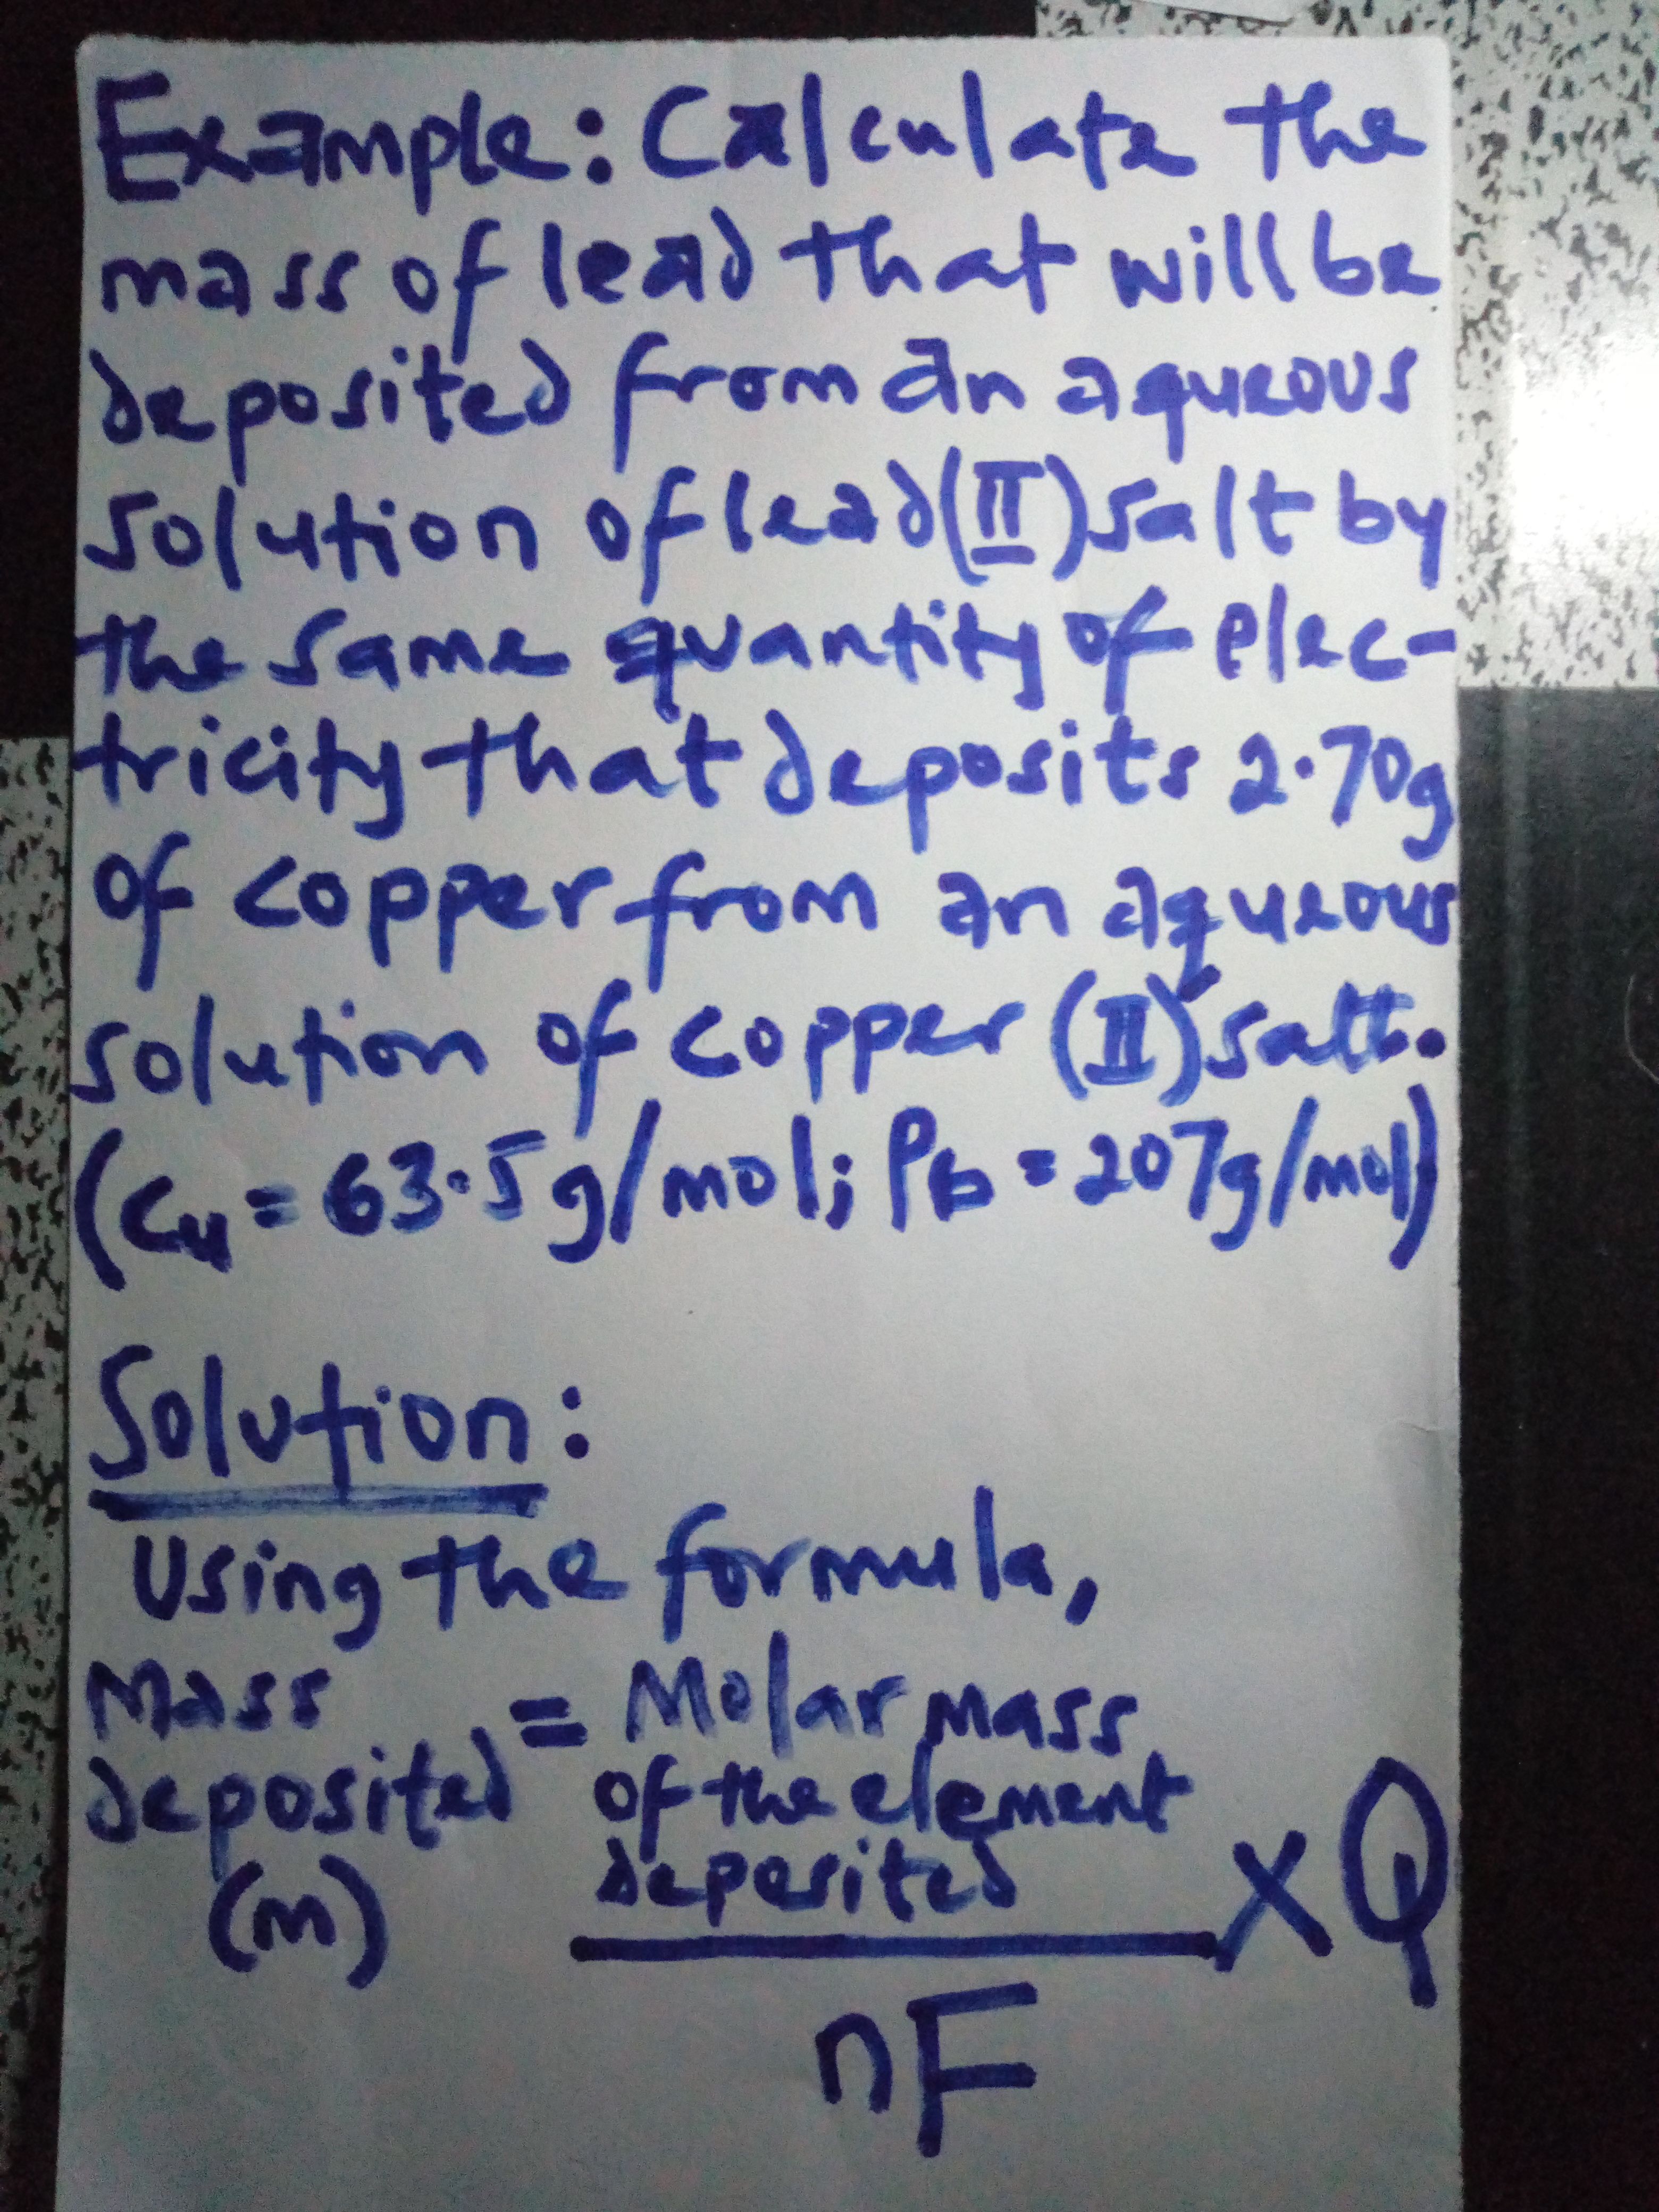 Example: Calculate the
mass of lead that will be
deposited from an aqueous
solution of lead(II) salt by
the same quantity of elec-
tricity that deposits 2.70g
of copper from an aqueous
solution of copper (II) salt.
(Cu = 63.5g/mol; Pb = 207g/mol)
Solution:
Using the formula,
Mass deposited (m) = Molar mass of the element deposited × Q
nF